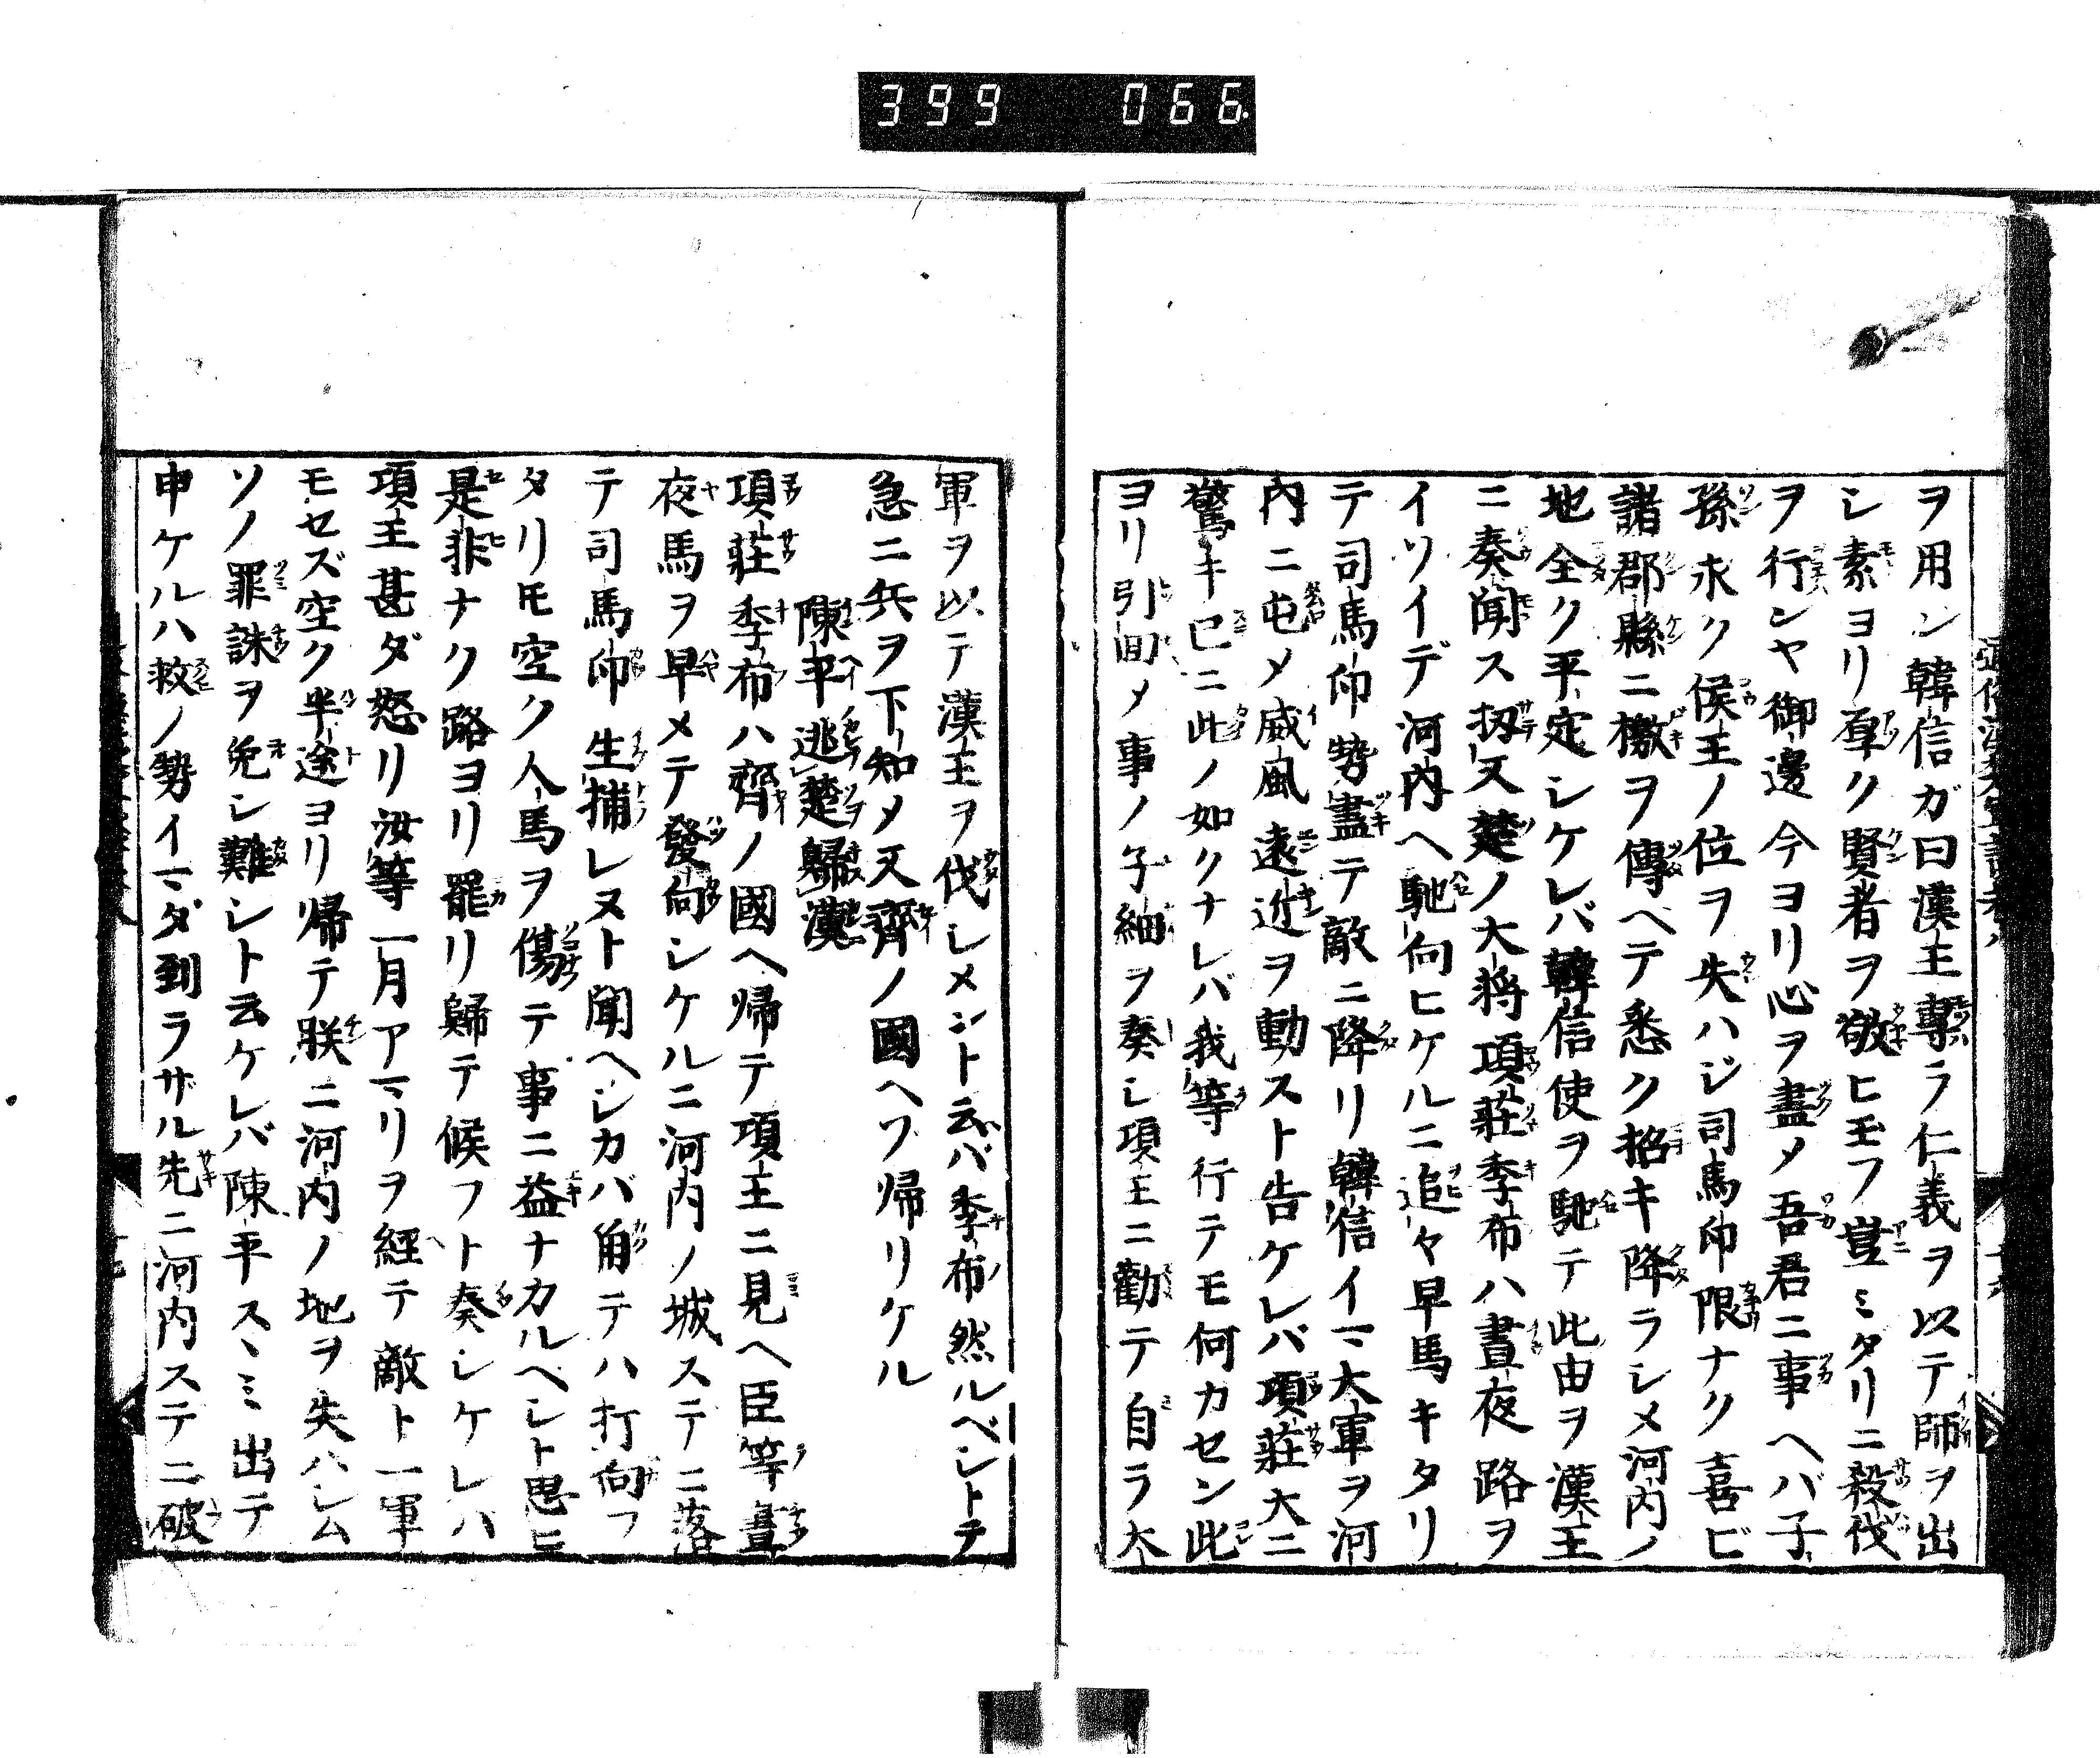 399 066
ヲ用ン韓信ガ曰漢王專ラ仁義ヲ以テ師ヲ出
シ素ヨリ厚ク賢者ヲ敬ヒ玉フ豈ミタリニ殺伐
ヲ行シヤ御邊今ヨリ心ヲ盡メ吾君ニ事ヘバ子
孫永ク侯王ノ位ヲ失ハジ司馬卬限ナク喜ビ
諸郡縣ニ檄ヲ傳ヘテ悉ク招キ降ラシメ河内ノ
地全ク平定シケレバ韓信使ヲ馳テ此由ヲ漢王
ニ奏聞ス扨又楚ノ大将項莊季布ハ晝夜路ヲ
イソイデ河内ヘ馳向ヒケルニ追々早馬キタリ
テ司馬卬勢盡テ敵ニ降リ韓信イマ大軍ヲ河
内ニ屯メ威風遠近ヲ動スト告ケレバ項莊大ニ
驚キ已ニ此ノ如クナレバ我等行テモ何カセン此
ヨリ引囬メ事ノ子細ヲ奏シ項王ニ勸テ自ラ大
軍ヲ以テ漢王ヲ伐シメント云バ季布然ルベシトテ
急ニ兵ヲ下知メ又齊ノ國ヘフ帰リケル
陳平逃楚歸漢
項莊季布ハ齊ノ國ヘ帰テ項王ニ見ヘ臣等晝
夜馬ヲ早メテ發向シケルニ河内ノ城ステニ落
テ司馬卬生捕レヌト聞ヘシカバ角テハ打向フ
タリモ空ク人馬ヲ傷テ事ニ益ナカルヘシト思ヒ
是非ナク路ヨリ罷リ歸テ候フト奏シケレハ
項王甚ダ怒リ汝等一月アマリヲ經テ敵ト一軍
モセズ空ク半途ヨリ帰テ朕ニ河内ノ地ヲ失ハシム
ソノ罪誅ヲ免シ難シト云ケレバ陳平スヽミ出テ
申ケルハ救ノ勢イマダ到ラザル先ニ河内ステニ破